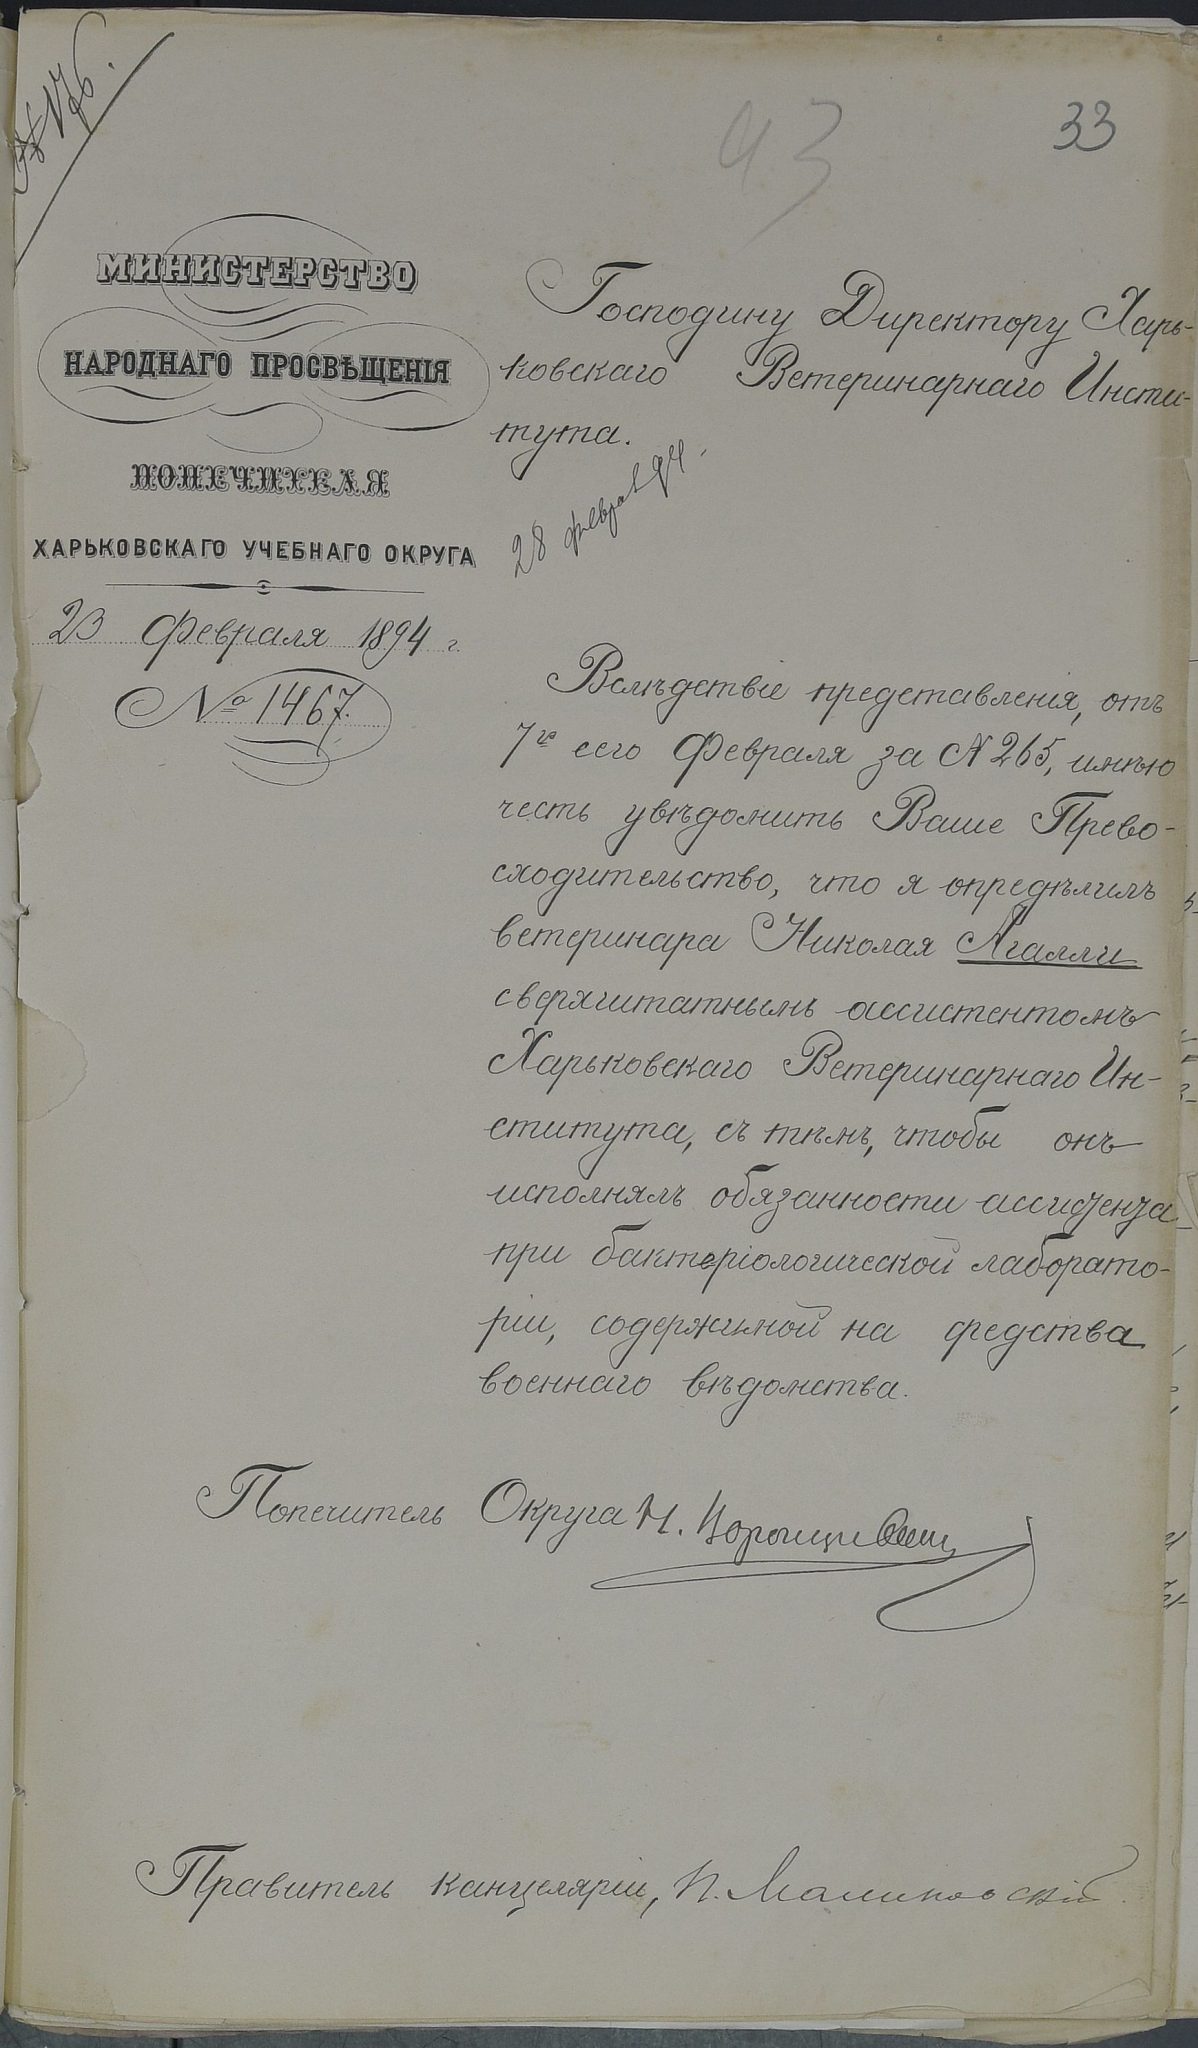 33
43
МИНИСТЕРСТВО
НАРОДНАГО ПРОСВѢЩЕНІЯ
ПОПЕЧИТЕЛЯ
ХАРЬКОВСКАГО УЧЕБНАГО ОКРУГА
23 Февраля 1894 г.
№ 1467.
Господину Директору Харь-
ковскаго Ветеринарнаго Инсти-
тута.
28 февраля 94.
Вслѣдствіе представленія, отъ
7го сего Февраля за N 265, имѣю
честь увѣдомить Ваше Прево-
сходительство, что я опредѣлилъ
ветеринара Николая Агалли
сверхштатнымъ ассистентомъ
Харьковскаго Ветеринарнаго Ин-
ститута, съ тѣмъ, чтобы онъ
исполнялъ обязанности ассистента
при бактеріологической лаборато-
ріи, содержимой на средства
военнаго вѣдомства.
Попечитель Округа Н. Воронцовъ
Правитель канцеляріи, П. Малиновскій